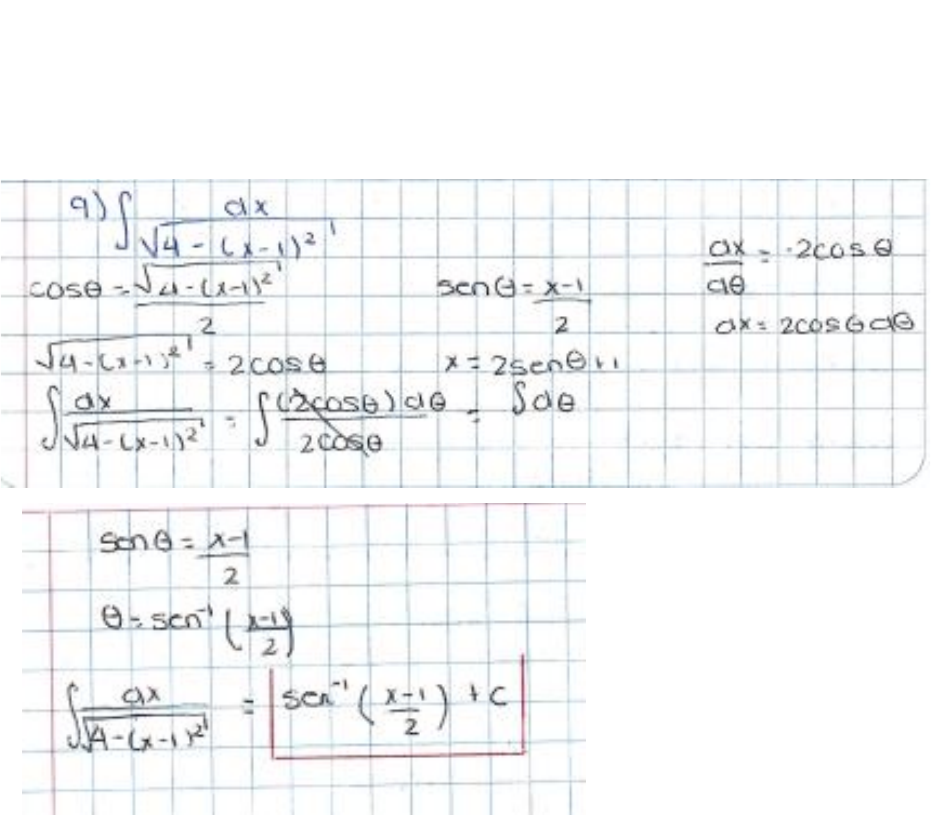 9) ∫ dx / √(4 - (x-1)²)
cosθ = √(4-(x-1)²) / 2
senθ = x-1 / 2
dx/dθ = 2cosθ
√(4-(x-1)²) = 2cosθ
x = 2senθ+1
dx = 2cosθdθ
∫ dx / √(4-(x-1)²) = ∫ (2cosθ)dθ / 2cosθ = ∫dθ
senθ = x-1 / 2
θ = sen⁻¹ (x-1 / 2)
∫ dx / √(4-(x-1)²) = sen⁻¹ (x-1 / 2) + C